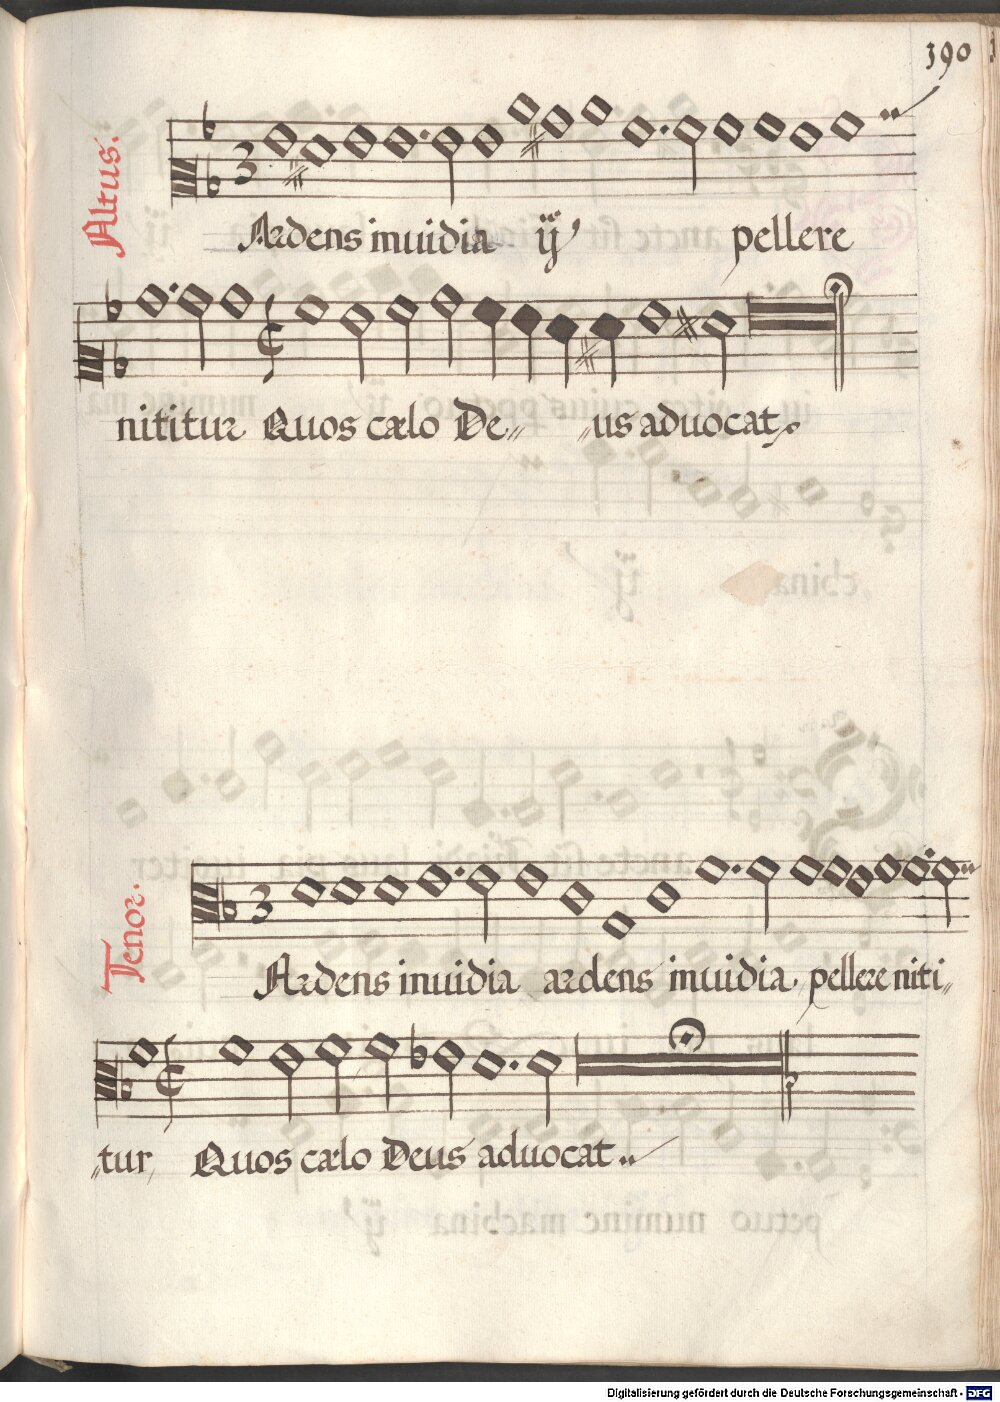 390
Altus.
Ardens inuidia ij pellere
nititur Quos cælo De„ „us aduocat.
Tenor.
Ardens inuidia ardens inuidia, pellere niti„
„tur, Quos cælo Deus aduocat..
Digitalisierung gefördert durch die Deutsche Forschungsgemeinschaft - DFG